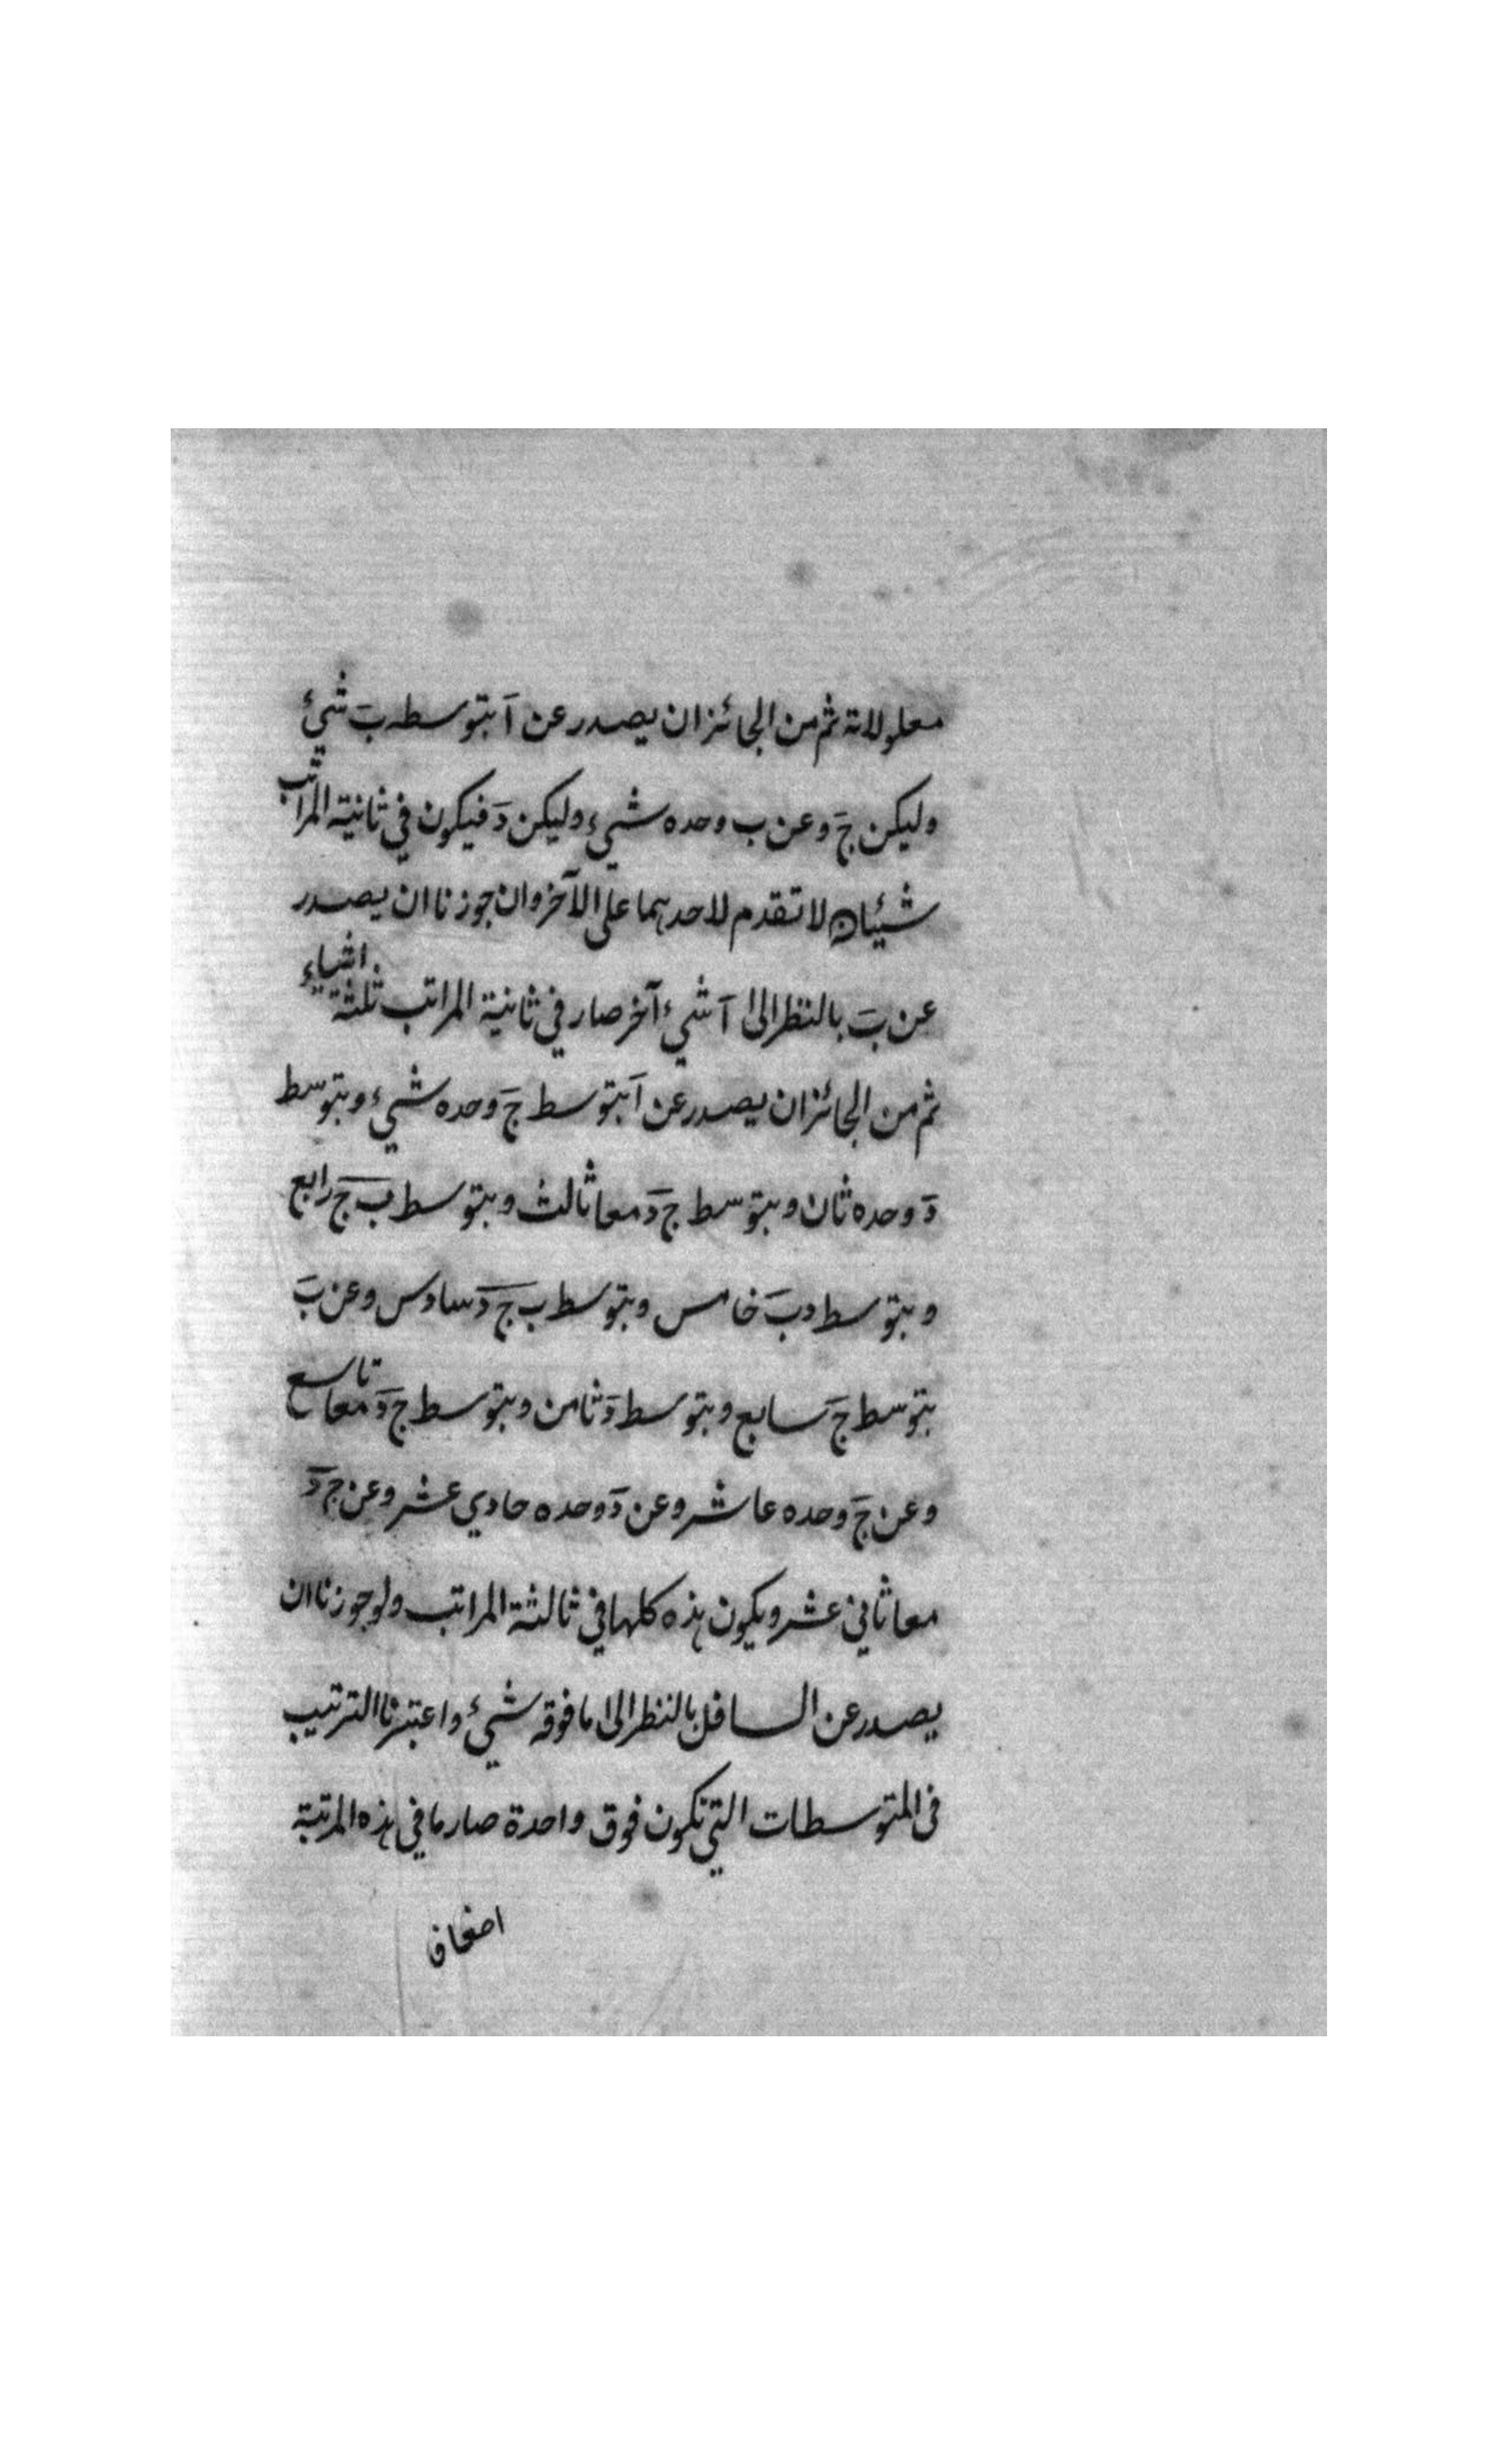 معلولاته ثم من الجائز ان يصدر عن آ بتوسطه بَ شيئ
وليكن جَ وعن ب وحده شيء وليكن دَ فيكون في ثانية المراتب
شيئان لا تقدم لاحدهما على الآخر وان جوزنا ان يصدر
عن بَ بالنظر الى آ شيء آخر صار في ثانية المراتب ثلثة اشياء
ثم من الجائز ان يصدر عن آ بتوسط جَ وحده شيء وبتوسط
دَ وحده ثان وبتوسط ج دَ معا ثالث وبتوسط بَ جَ رابع
وبتوسط د بَ خامس وبتوسط ب ج دَ سادس وعن بَ
بتوسط جَ سابع وبتوسط دَ ثامن وبتوسط ج دَ معا تاسع
وعن جَ وحده عاشر وعن دَ وحده حادي عشر وعن ج دَ
معا ثاني عشر ويكون هذه كلها في ثالثة المراتب ولو جوزنا ان
يصدر عن السافل بالنظر الى ما فوقه شيئ واعتبرنا الترتيب
فى المتوسطات التي تكون فوق واحدة صار ما في هذه المرتبة
اضعاف